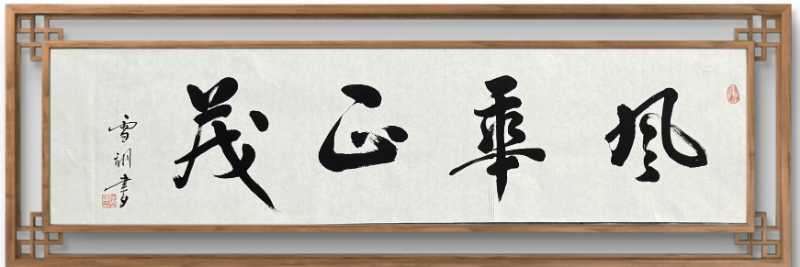 風華正茂
雪訓書